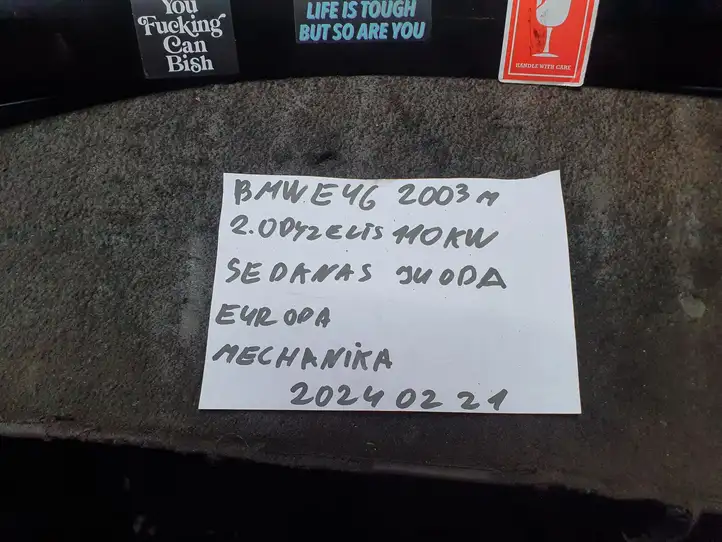 You
Fucking
Can
Bish
LIFE IS TOUGH
BUT SO ARE YOU
HANDLE WITH CARE
BMW E46 2003 m
2.0 DYZELIS 110KW
SEDANAS JUODA
EUROPA
MECHANIKA
2024 02 21